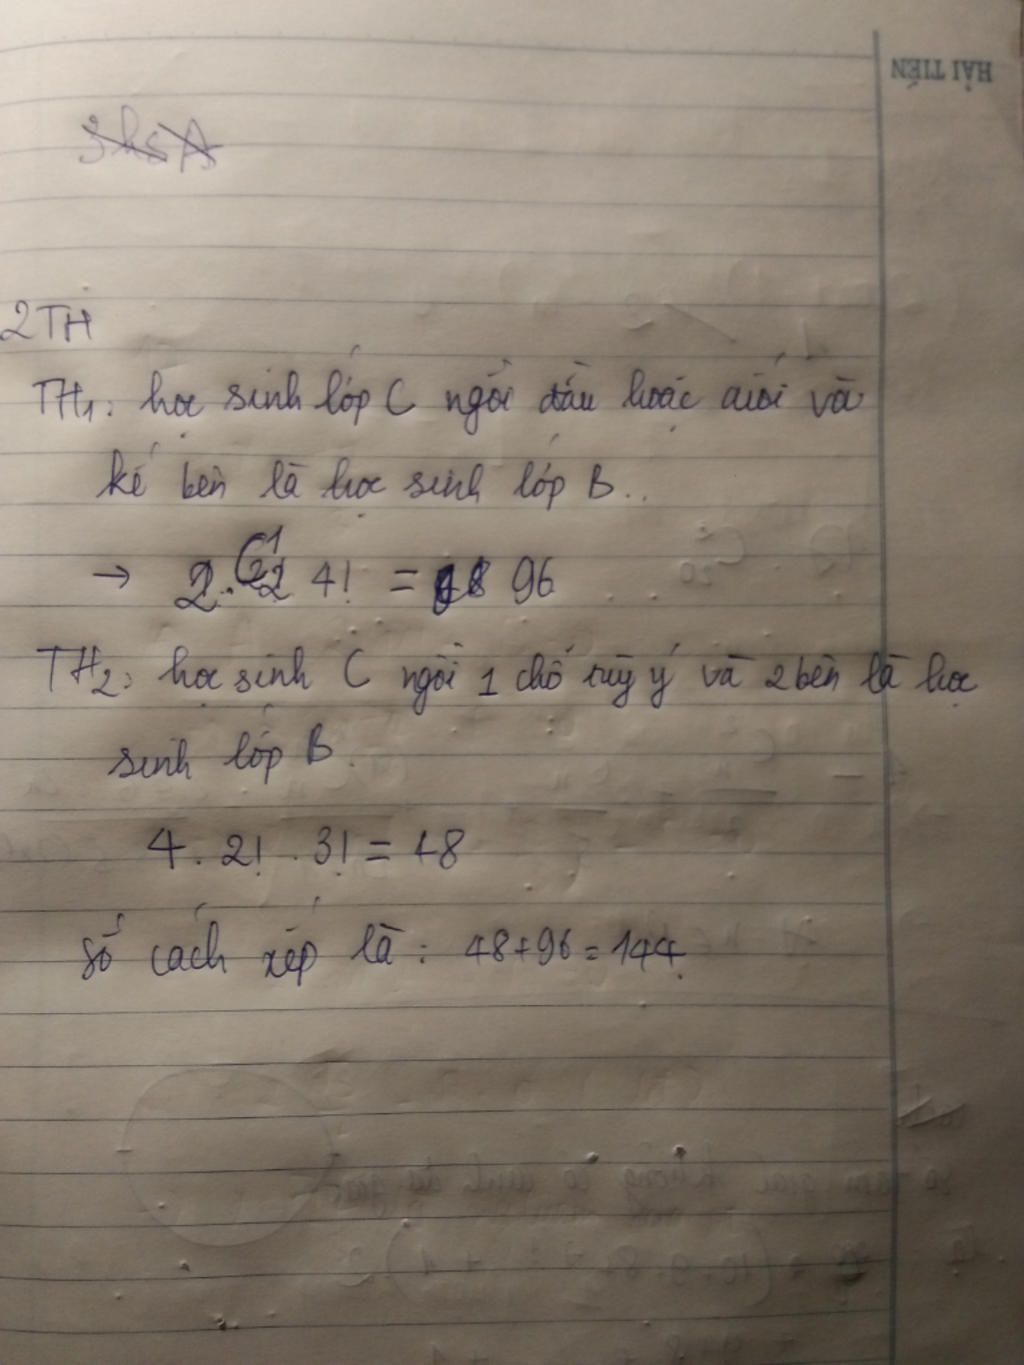 HẢI TIẾN
3hsA
2TH
TH1: học sinh lớp C ngồi đầu hoặc cuối và
kế bên là học sinh lớp B..
→ 2.C¹₂ 4! = 96
TH2: học sinh C ngồi 1 chỗ tùy ý và 2 bên là học
sinh lớp B.
4. 2! . 3! = 48
số cách xếp là : 48+96=144.